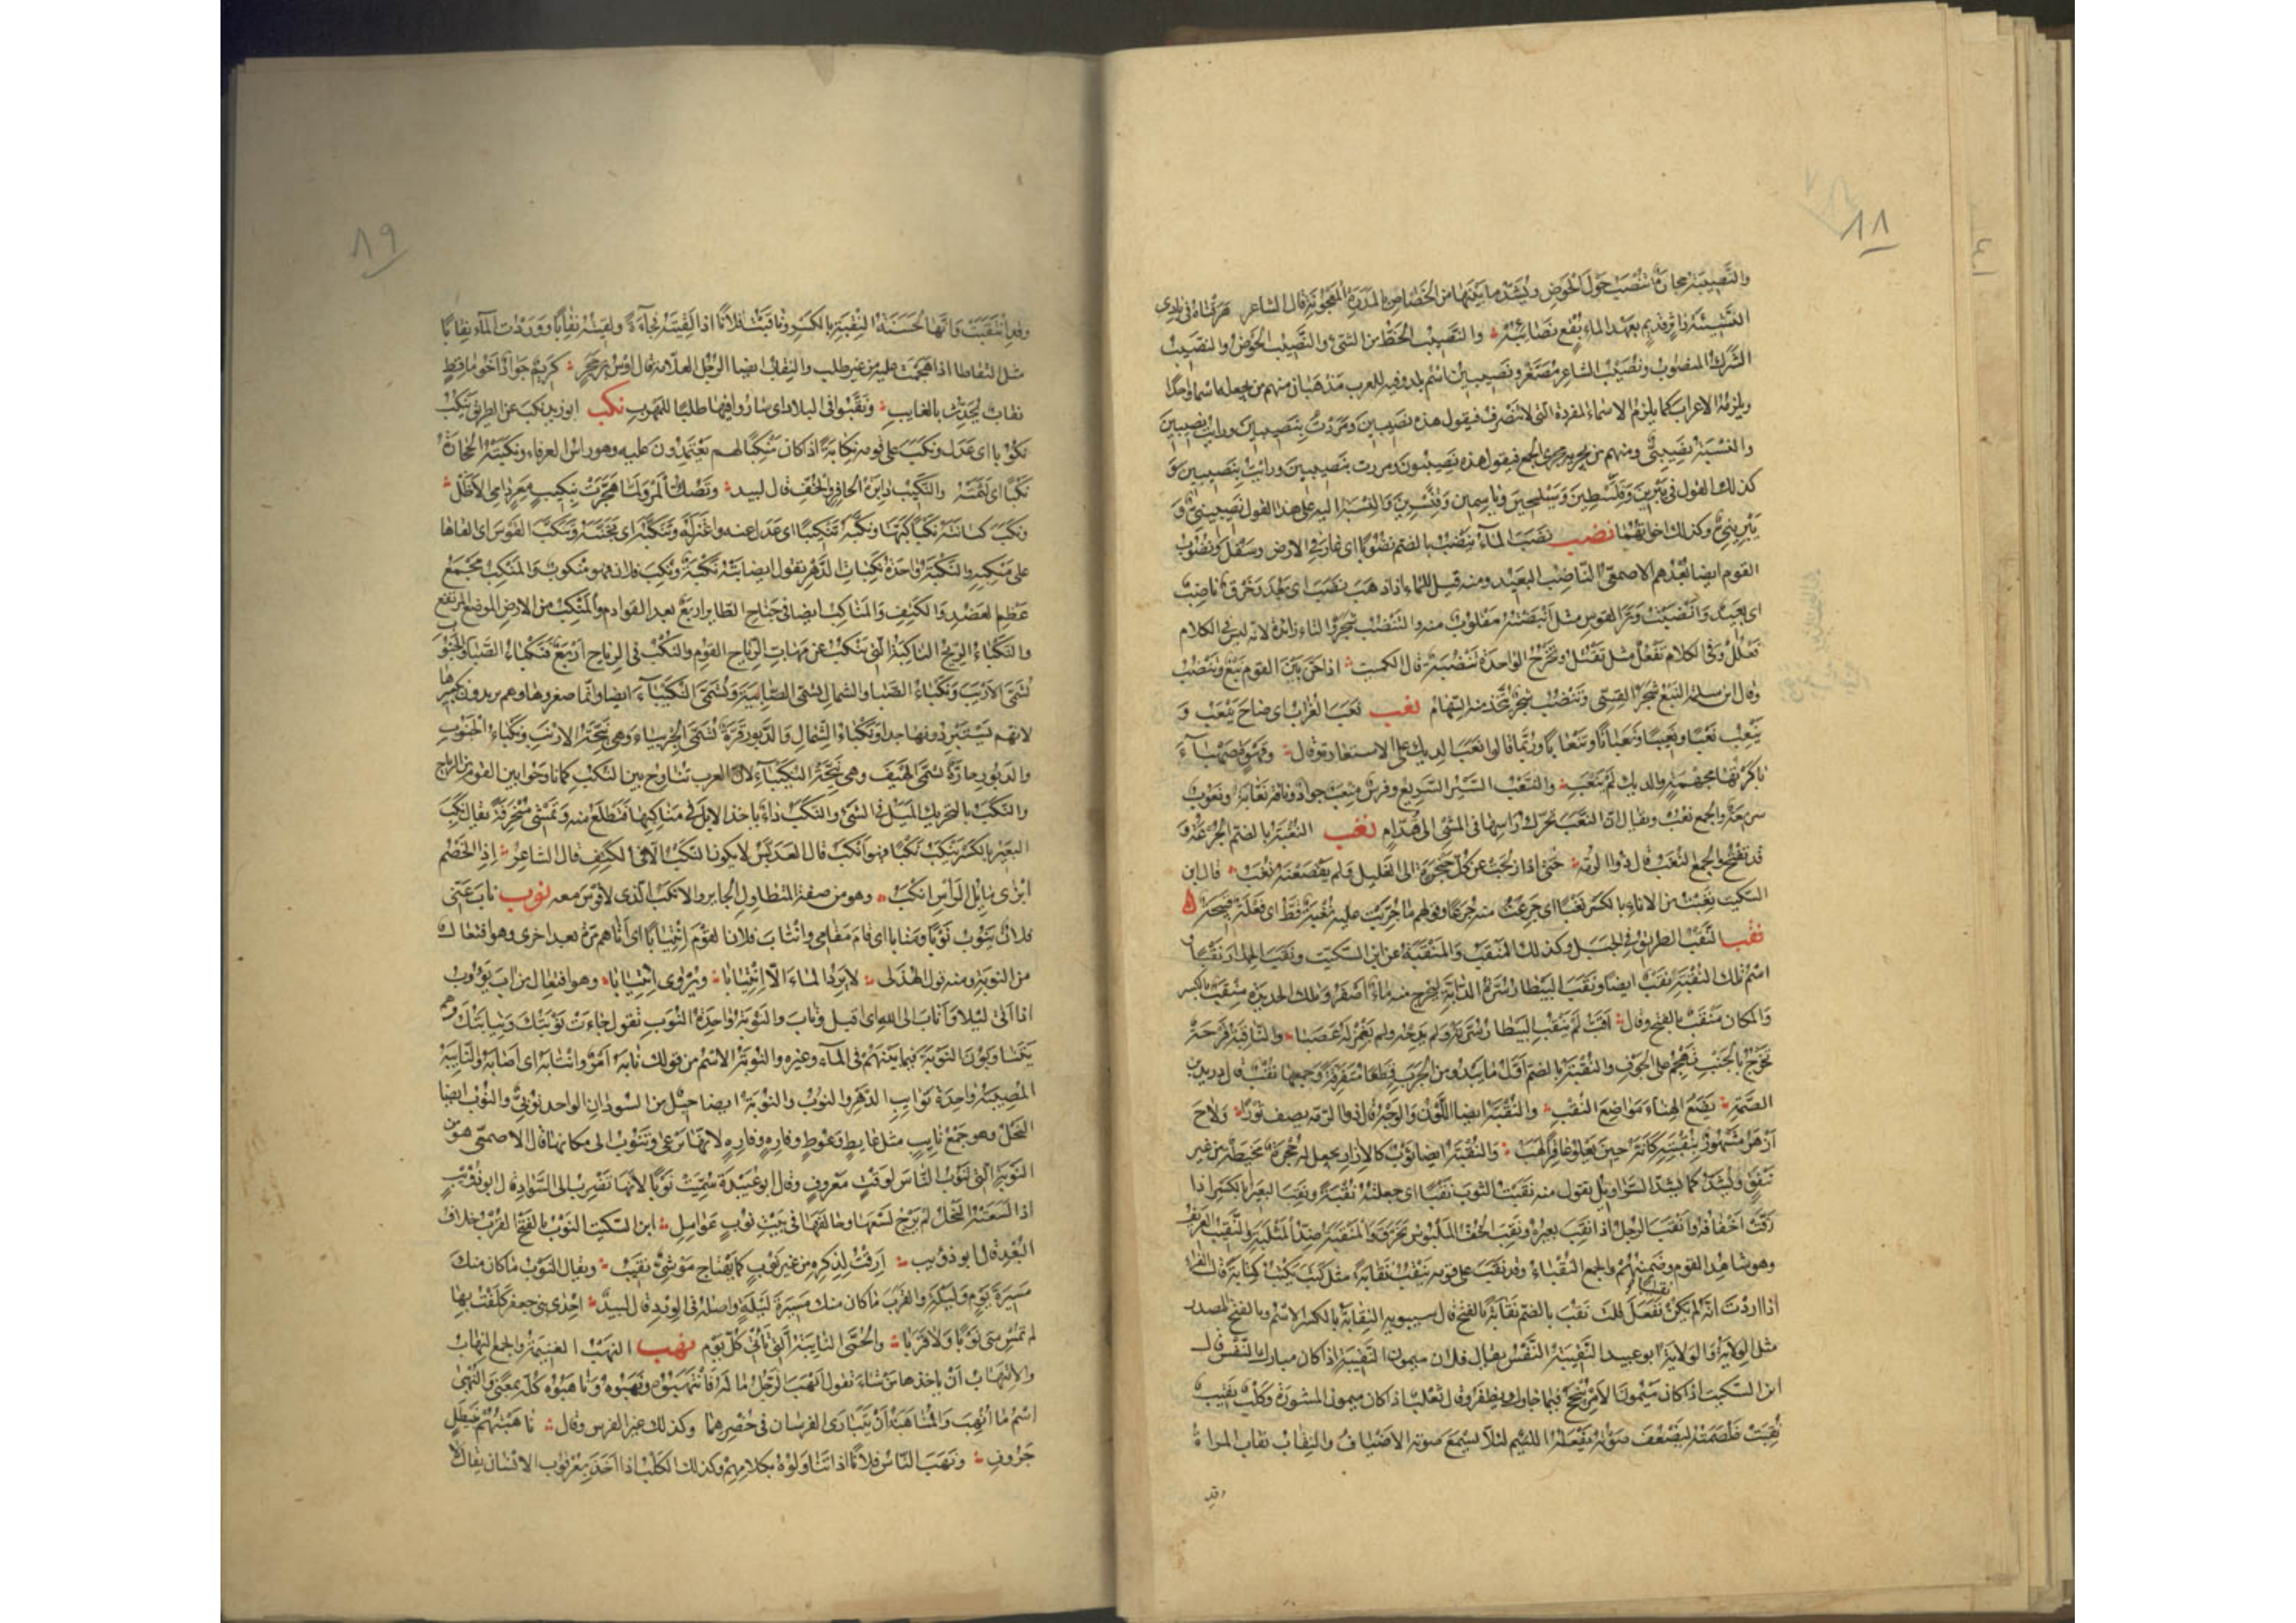 ٨٨
والنصيبة حجارة تنصب حول الحوض ويُسَدّ ما بينها من الخصاص بالمدرة المعجونة قال الشاعر هرقناه في بادي
النشيئة داثر قديم بعهد الماء بقع نصائبه والنصيب الحظ من الشيء والنصيب الحوض والنصيب
الشرك المنصوب ونصيب الشاعر مصغّر ونصيبين اسم بلد وفيه للعرب مذهبان منهم من يجعله اسما واحدا
ويلزمه الاعراب كما يلزم الاسماء المفردة التي لا تنصرف فيقول هذه نصيبين ومررت بنصيبين ورايت نصيبين
والنسبة نصيبيّ ومنهم من يجريه مجرى الجمع فيقول هذه نصيبون ومررت بنصيبين ورايت نصيبين و
كذلك القول في يبرين وفلسطين وسيلحين وياسمين وقنسرين والنسبة اليه على هذا القول نصيبينيّ و
يبرينيّ وكذلك اخواتهما نضب نضب الماء ينضب بالضم نضوبا اى غار في الارض وسفل ونضوب
القوم ايضا بُعدهم الاصمعي الناضب البعيد ومنه قيل للماء اذا ذهب نضب اى بعد وخرق ناضب
اى بعيد وانضبت وتر القوس مثل انبضته مقلوب منه والتنضب شجر والتاء زائدة لانه ليس في الكلام
فعلل وفي الكلام تفعل مثل تقتل وتخرج الواحدة تنضبة قال الكميت اذا حنّ بين القوم نبع وتنضب
وقال ابن سلمة النبع شجر القسي وتنضب شجر تتخذ منه السهام نعب نعب الغراب اى صاح ينعب و
ينعب نعبا ونعيبا ونعبانا وتنعابا وربما قالوا نعب الديك على الاستعارة وقال وقهوة صهباء
باكرتها بجهمة والديك لم ينعب والنعب السير السريع وفرس منعب جواد وناقة نعابة ونعوب
سريعة والجمع نعب ويقال ان النعب تحرك راسها في المشي الى قدام نغب النغبة بالضم الجرعة و
قد تفتح والجمع النغب قال ذو الرمة حتى اذا زلجت عن كل حنجرة الى الغليل ولم يقصعنه نغب قال ابن
السكيت نغبت من الاناء بالكسر نغبا اى جرعت منه جرعا وقولهم ما جربت عليه نغبة قط اى فعلة قبيحة
نقب النقب الطريق في الجبل وكذلك المنقب والمنقبة عن ابن السكيت ونقب الجدار نقبا و
اسم تلك النقبة نقب ايضا ونقب البيطار سرة الدابة ليخرج منه ماء اصفر وتلك الحديدة منقب بالكسر
والمكان منقب بالفتح وقال اقب لم ينقب البيطار سرته ولم يدجه ولم يغمز له عصبا والناقبة قرحة
تخرج بالجنب تهجم على الجوف والنقبة بالضم اول ما يبدو من الجرب قطعا متفرقة وجمعها نقب قال دريد بن
الصمة يضع الهناء مواضع النقب والنقبة ايضا اللون والوجه قال ذو الرمة يصف ثورا ولاح
ازهر مشهور بنقبته كانه حين يعلو عاقرا لهب والنقبة ايضا ثوب كالازار يجعل له حجزة مخيطة من غير
نيفق ويشد كما يشد السراويل يقول منه نقبت الثوب نقبا اى جعلته نقبة ونقب البعير بالكسر اذا
رقت اخفافه وانقب الرجل اذا نقب بعيره ونقب الخف الملبوس تخرق والمنقبة ضد المثلبة والنقيب العريف
وهو شاهد القوم وضمينهم والجمع النقباء وقد نقب على قومه ينقب نقابة مثل كتب يكتب كتابة قال الفراء
اذا اردت انه لم يكن نقيبا ففعل قلت نقب بالضم نقابة بالفتح قال سيبويه النقابة بالكسر الاسم وبالفتح المصدر
مثل الولاية والولاية ابو عبيد النقيبة النفس يقال فلان ميمون النقيبة اذا كان مبارك النفس قال
ابن السكيت اذا كان ميمون الامر ينجح فيما حاول ويظفر وقال ثعلب اذا كان ميمون المشورة وكلب نقيب
نقبت غلصمته ليضعف صوته يفعله اللئيم لئلا يسمع صوته الاضياف والنقاب نقاب المراة
وقد
٨٩
وقد انتقبت وانها لحسنة النقبة بالكسر وناقبت فلانا اذا لقيته فجاءة ولقيته نقابا ووردت الماء نقابا
مثل التقاطا اذا هجمت عليه من غير طلب والنقاب ايضا الرجل العلامة قال اوس بن حجر كريم جواد اخو ماقط
نقاب يحدث بالغايب ونقبوا في البلاد اى ساروا فيها طلبا للمهرب نكب ابو زيد نكب عن الطريق ينكب
نكوبا اى عدل ونكب على قومه نكابة اذا كان منكبا لهم يعتمدون عليه وهو راس العرفاء ونكبته الحجارة
نكبا اى لثمته والنكيب دايرة الحافر والخف قال لبيد وتصك المرو لما هجرت بنكيب معر دامي الاظل
ونكب كنانته نكبا كبها ونكبه تنكيبا اى عدل عنه واعتزله وتنكبه اى تجنبه وتنكب القوس اى القاها
على منكبه والنكبة واحدة نكبات الدهر تقول اصابته نكبة ونكب فلان فهو منكوب والمنكب مجمع
عظم العضد والكتف والمناكب ايضا في جناح الطاير اربع بعد القوادم والمنكب من الارض الموضع المرتفع
والنكباء الريح الناكبة التي تنكب عن مهابّ الرياح القوم والنكب في الرياح اربع فنكباء الصبا والجنوب
تسمى الازيب ونكباء الصبا والشمال تسمى الصابية وتسمى النكيباء ايضا وانما صغروها وهم يريدون تكبيرها
لانهم يستبردونها جدا ونكباء الشمال والدبور قرة تسمى الجربياء وهي نيحة الازيب ونكباء الجنوب
والدبور حارة تسمى الهيف وهي نيحة النكيباء لان العرب تناوح بين النكب كما ناوحوا بين القوم من الرياح
والنكب بالتحريك الميل في الشيء والنكب داء ياخذ الابل في مناكبها فتظلع منه وتمشي منحرفة يقال نكب
البعير بالكسر ينكب نكبا فهو انكب قال العدبس لا يكون النكب الا في الكتف قال الشاعر اذا الخصم
ابزى مايل الراس انكب وهو من صفة المتطاول الجاير والانكب الذي لا قوس معه نوب ناب عني
فلان ينوب نوبا ومنابا اى قام مقامي وانتاب فلان القوم انتيابا اى اتاهم مرة بعد اخرى وهو افتعال
من النوبة ومنه قول الهذلي لا يرد الماء الا انتيابا ويروى ائتيابا وهو افتعال من اب يؤوب
اذا اتى ليلا واناب الى الله اى اقبل وتاب والنوبة واحدة النوب تقول جاءت نوبتك ونيابتك وهم
يتناوبون النوبة فيما بينهم في الماء وغيره والنوبة الاسم من قولك نابه امر وانتابه اى اصابه والنايبة
المصيبة واحدة نوايب الدهر والنوب والنوبة ايضا جيل من السودان الواحد نوبي والنوب ايضا
النحل وهو جمع نايب مثل عايط وعوط وفاره وفره لانها ترعى وتنوب الى مكانها قال الاصمعي هو من
النوبة التي تنوب الناس لوقت معروف وقال ابو عبيدة سميت نوبا لانها تضرب الى السواد قال ابو ذؤيب
اذا لسعته النحل لم يرج لسعها وخالفها في بيت نوب عوامل ابن السكيت النوب بالفتح القرب خلاف
البعد قال ابو ذؤيب ارقت لذكره من غير نوب كما يهتاج موشي نقيب ويقال النوب ما كان منك
مسيرة يوم وليلة والقرب ما كان منك مسيرة ليلة واصله في الورد قال لبيد احدى بني جعفر كلفت بها
لم تمس مني نوبا ولا قربا والحمى النايبة التي تاتي كل يوم نهب النهب الغنيمة والجمع النهاب
والانتهاب ان ياخذها من شاء تقول انهب الرجل ماله فانتهبوه ونهبوه وناهبوه كله بمعنى والنهبى
اسم ما انهب والمناهبة ان يتبارى الفرسان في حضرهما وكذلك غير الفرس وقال ناهبتهم بنيطل
جروف ونهب الناس فلانا اذا تناولوه بكلامهم وكذلك الكلب اذا اخذ بعرقوب الانسان يقال لا